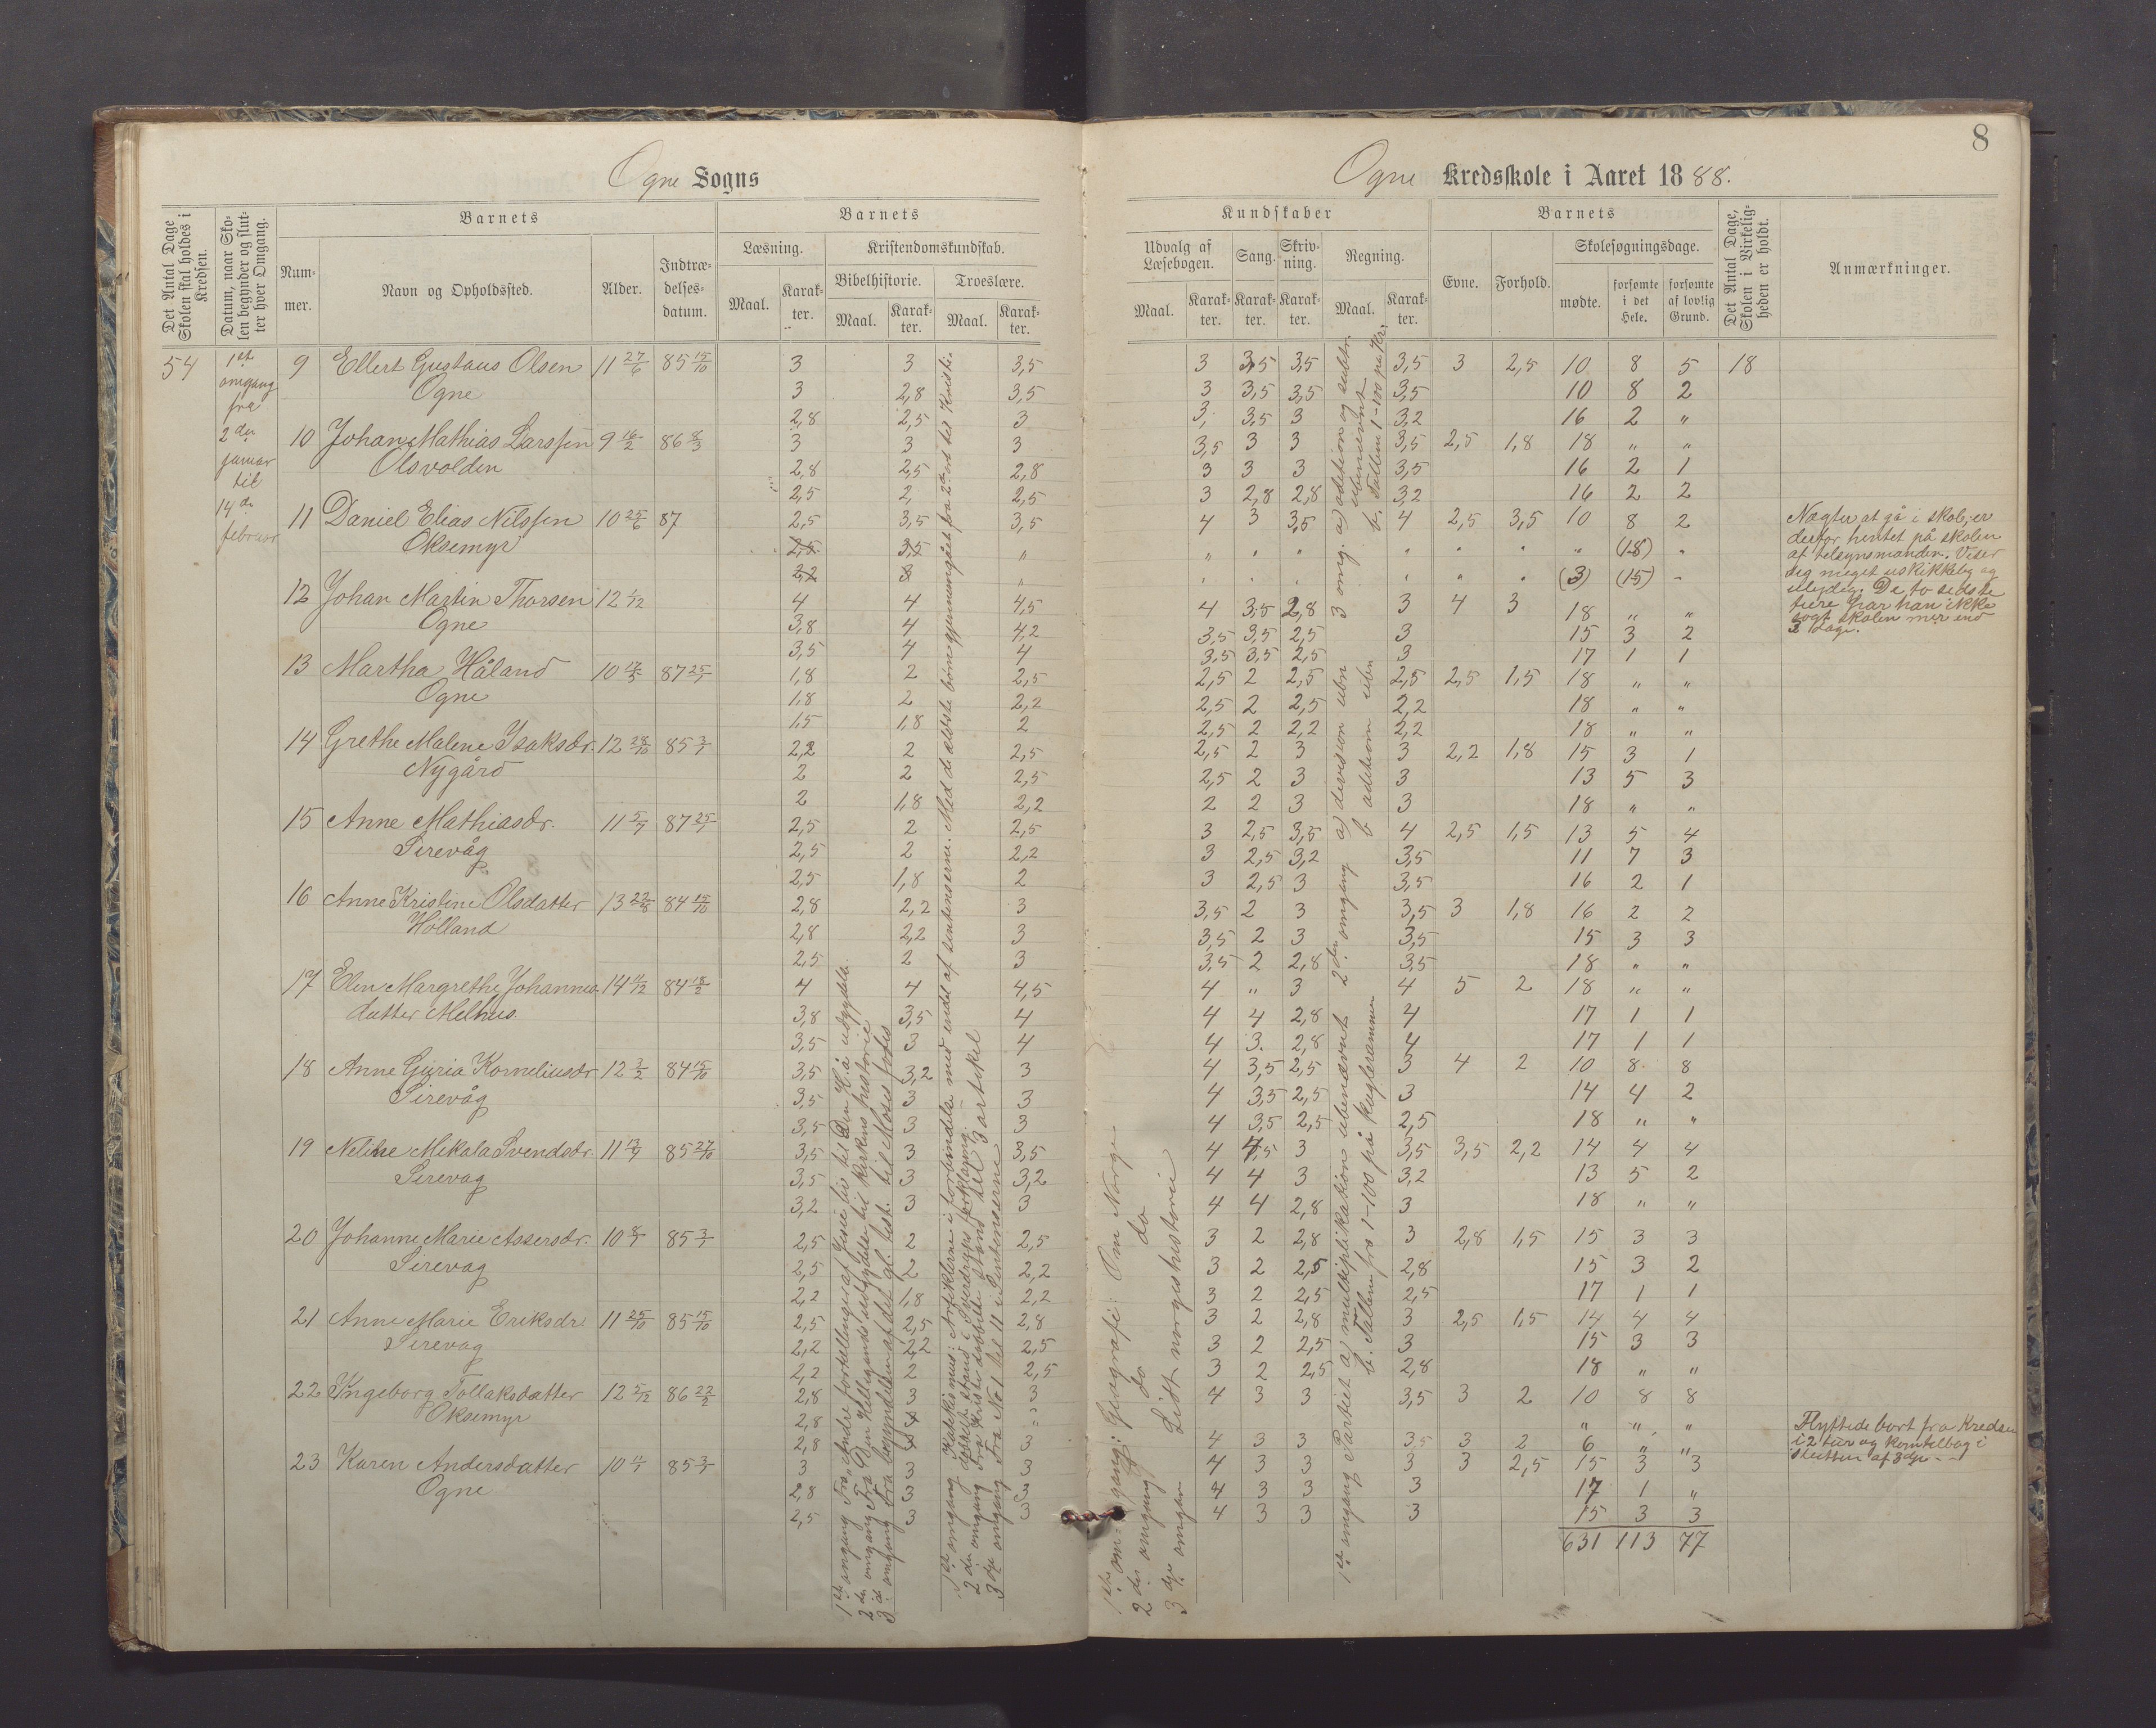 8
Ogne Sogns
Ogne Kredsskole i Aaret 1888.
Det Antal Dage Skolen skal holdes i Kredsen.
Datum, naar Skolen begynder og slutter hver Omgang.
Barnets
Nummer.
Navn og Opholdssted.
Alder.
Indtrædelsesdatum.
Barnets
Læsning.
Maal.
Karakter.
Kristendomskundskab.
Bibelhistorie.
Maal.
Karakter.
Troeslære.
Maal.
Karakter.
Kundskaber
Udvalg af Læsebogen.
Maal.
Karakter.
Sang.
Karakter.
Skrivning.
Karakter.
Regning.
Maal.
Karakter.
Barnets
Evne.
Forhold.
Skolesøgningsdage.
mødte.
forsømte i det Hele.
forsømte af lovlig Grund.
Det Antal Dage, Skolen i Virkeligheden er holdt.
Anmærkninger.
54
1ste omgang fra 2den januar til 14de februar
9 Ellert Gustavs Olsen 11 27/6 85 15/10 3 3 3,5 3 3,5 3,5 3,5 3 2,5 10 8 5 18
Ogne 3 2,8 3,5 3 3,5 3,5 3,5 10 8 2
2,8 2,5 3 3, 3,5 3 3,2 16 2 "
10 Johan Mathias Larssen 9 16/2 86 8/3 3 3 3 3,5 3 3 3,5 2,5 1,8 18 " "
Olsvolden 2,8 2,5 2,8 3 3 3 3,5 16 2 1
2,5 2, 2,5 3 2,8 2,8 3,2 16 2 2
11 Daniel Elias Nilssen 10 25/6 87 2,5 3,5 3,5 4 3 3,5 4 2,5 3,5 10 8 2
Oksemyr 2,5 3,5 " " " " " " " " (18) "
2,2 3 " " " " " " " (3) (15) -
12 Johan Martin Thorsen 12 1/12 4 4 4,5 4 3,5 2,8 3 4 3 18 " "
Ogne 3,8 4 4,2 3,5 3,5 2,5 3 15 3 2
3,5 4 4 3,5 3,5 2,5 3 17 1 1
13 Martha Håland 87 25/7 1,8 2 2,5 2,5 2 2,5 2,5 2,5 1,5 18 " "
Ogne 1,8 2 2,2 2,5 2 2,5 2,2 18 " "
1,5 1,8 2 2,5 2 2,2 2,2 18 " "
14 Grethe Malene Isaksdr. 12 28/10 85 3/7 2,2 2 2,5 2,5 2 3 3 2,2 1,8 15 3 1
Nygård 2 2 2,5 2,5 2 3 3 13 5 3
2 1,8 2,2 2 2 3 3 18 " "
15 Anne Mathiasdr. 11 5/7 87 25/7 2,5 2 2,5 3 2,5 3,5 4 2,5 1,5 13 5 4
Sirevåg 2,5 2 2,2 3 2,5 3,2 3,5 11 7 3
2,5 1,8 2 3 2,5 3 3,5 16 2 1
16 Anne Kristine Olsdatter 13 22/8 84 15/10 2,8 2,2 3 3,5 2 3 3,5 3 1,8 16 2 2
Hølland 2,8 2,2 3 3,5 2 3 3,5 15 3 3
2,5 2 3 3,5 2 2,8 3,5 18 " "
17 Elen Margrethe Johannes- 14 11/12 84 18/2 4 4 4,5 4 " 3 4 5 2 18 " "
datter Melhus. 3,8 3,5 4 4 4 2,8 4 17 1 1
3,5 3 4 4 3. 2,8 4 17 1 1
18 Anne Guria Korneliusdr 12 3/2 84 15/10 3,5 3,2 3 4 3,5 2,5 3 4 2 10 8 8
Sirevåg 3,5 3 3 4 3,5 2,5 3 14 4 2
3,5 3 3 4 3,5 2,5 2,5 18 " "
19 Neline Mikala Svendsdr. 85 27/10 3,5 3 3,5 4 4,5 3 3,5 3,5 2,2 14 4 4
Sirevag 3,5 3 3,2 4 4 3 3,2 13 5 2
3,2 3 3 4 4 2,8 3 18 " "
20 Johanne Marie Assersdr. 10 8/7 85 3/7 2,5 2 2,5 3 2 2,8 3 2,8 1,5 15 3 3
Sirevag 2,5 2 2,2 3 2 2,5 2,8 15 3 2
2,2 1,8 2,2 3 2 2,5 2,5 17 1 1
21 Anne Marie Eriksdr 11 25/10 85 15/10 2,5 2,5 2,8 3 2 2,8 3 2,5 1,5 14 4 4
Sirevag 2,2 2,2 2,5 3 2 2,5 3 15 3 3
2,2 2 2,5 3 2 2,5 2,8 18 " "
22 Ingeborg Tollaksdatter 12 5/12 86 22/2 2,8 3 3 4 3 3 3,5 3 2 10 8 8
Oksemyr 2,8 " " " "
2,8 3 4 3 3 3,5 3 2 6 " "
23 Karen Andersdatter 85 3/7 3 3 3 4 3 3 3 3 2,5 15 3 3
Ogne 2,8 3 3 4 3 3 3 17 1 "
2,5 3 3 4 3 3 3 15 3 3
631 113 77
Nægter at gå i skole, er
derfor hentet på skolen
at tilsynsmanden. Viser
sig meget uskikkelig og
ulydig. De to sidste
ture har han ikke
søgt skolen mer end
3 dage.
Flyttede bort fra Kredsen
i 2 tur og kom tilbag i
slutten af 3dje
1ste omgang Fra "Andre fortællinger af Jesu liv til Den H. å udgydelse.
2den omgang Fra Den Helligånds udgydelse til kirkens historie
3die omgang Fra begyndelsen af det gl. test. til Moses fødsel
1ste omgang Katekismus: Artiklerne i forbindelse med endel af sentenserne. Med de ældste børn gjennemgået fra 2den art til Kristi
dobbelt stand i Sverdrups forklaring.
2den omgang Fra Kristi dobbelte stand til 3 artikel
3dje omgang Fra No 1 til 11 i Sentenserne
1ste omgang: Geografi: Om Norge
2den omgang do do
3dje omgan Lidt norgeshistorie
1ste omgang Partiet a) multiplikation ubenævnt 2den omgang a) division ubn 3 omg. a) adetion og subtn.
b. Tallene fra 1-100 på kuglerammen b adetion ubn ubenævnt
b. Tallene 1-100 på Kr.